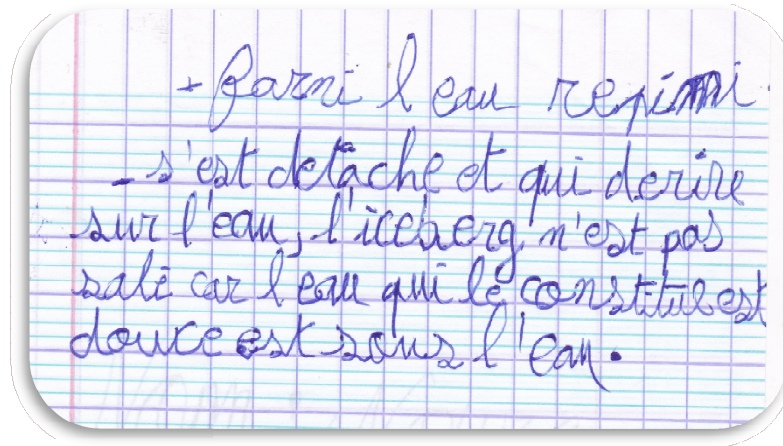 - farni l eau repimi
- s'est detâché et qui derire
sur l'eau, l'iceberg n'est pas
salé car l'eau qui le constitue est
douce est sous l'eau.